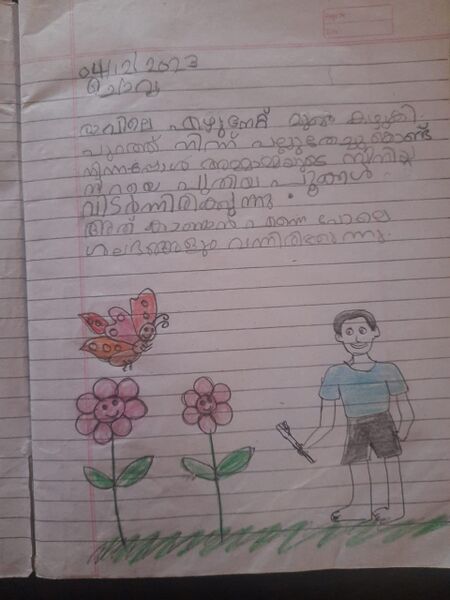 04/12/2023
ചൊവ്വ
രാവിലെ എഴുന്നേറ്റ് മുഖം കഴുകി
പുറത്ത് നിന്ന് പല്ലുതേച്ചുകൊണ്ട്
നിന്നപ്പോൾ അമ്മാമ്മയുടെ
നിറയെ പുതിയ പൂക്കൾ
വിടർന്നിരിക്കുന്നു.
അത് കാണാൻ എന്നെ പോലെ
ശലഭങ്ങളും വന്നിരിക്കുന്നു.